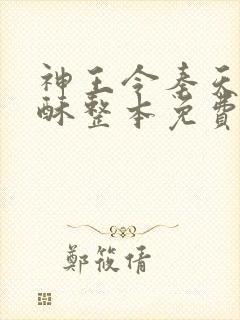 神王令秦天
酥整本免費
鄭筱倩